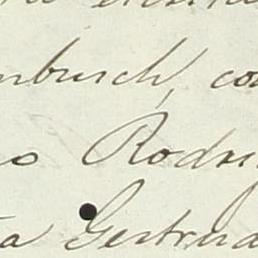 nbusch, co
o Rodri
a Gertrud